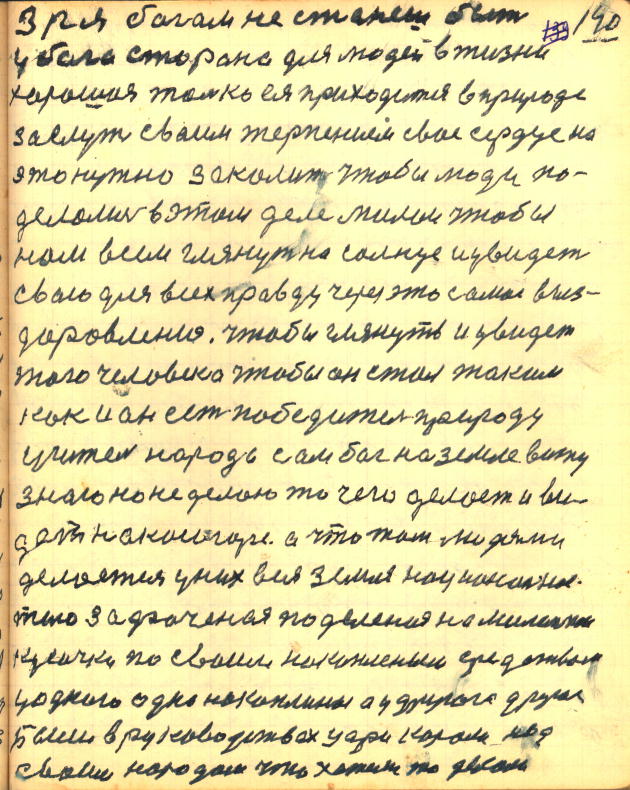 Зря багам не станеш быт 190
у бога сторана для людей в жизни
харошая толко ея приходится в природе
заслуж сваим терпением свае сердце на
это нужно заколит чтобы люди по-
делали в этом деле милои чтобы
нам всем глянут на солнце и увидет
сваю для всех правду через это самае выз-
даровления. чтобы глянуть и увидет
того человека чтобы он стал таким
как и ан ест победител природу
учител народа сам бог на земле вижу
знаю но не делаю то чего делает и ви-
дет на а что там людями
делается у них вся земля
захваченая поделеная на
кусочки по своим накоплением средствам
у одного одно накоплины а у другога другое
Были в руководствах цари карали над
своим народам что хотели то делали